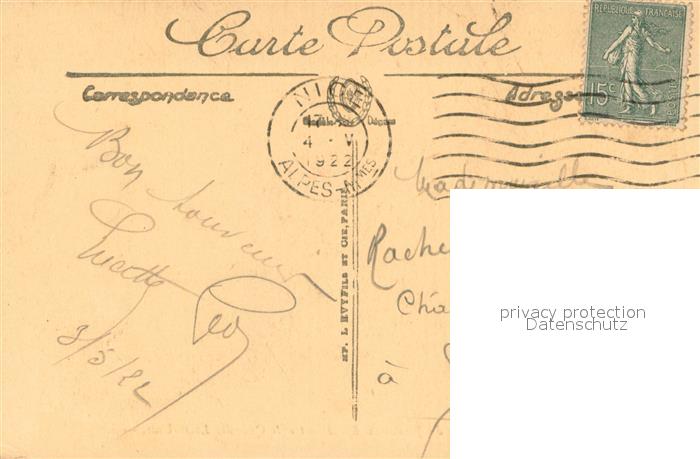 Carte Postale
RÉPUBLIQUE FRANÇAISE
15c
Correspondance
Adresse
NICE
17
4 - V
1922
ALPES-MMES
Bon souvenir
Lucette
3/5/22
LL
IMP. L HUYFILS ET CIE, PARIS
Mademoiselle
Rache
Châ
à
privacy protection
Datenschutz